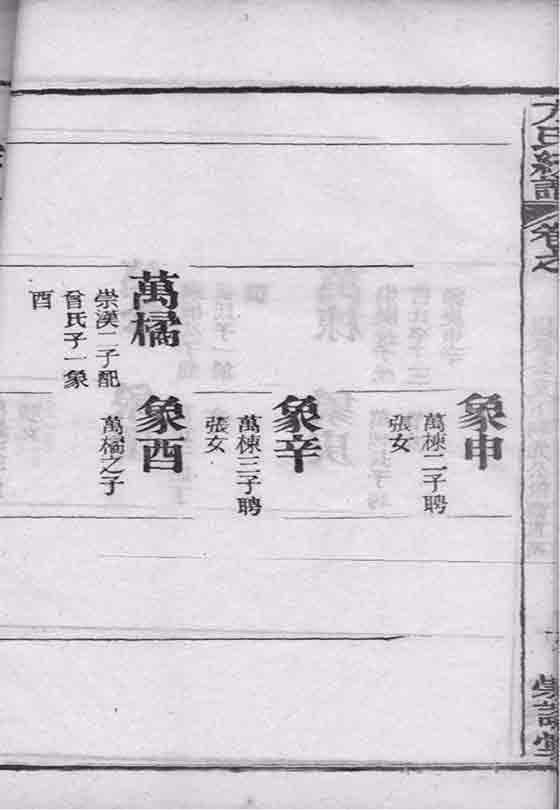 象申
萬棟二子聘
張女
象辛
萬棟三子聘
張女
萬橘
崇漢二子配
曾氏子一象
酉
象酉
萬橘之子